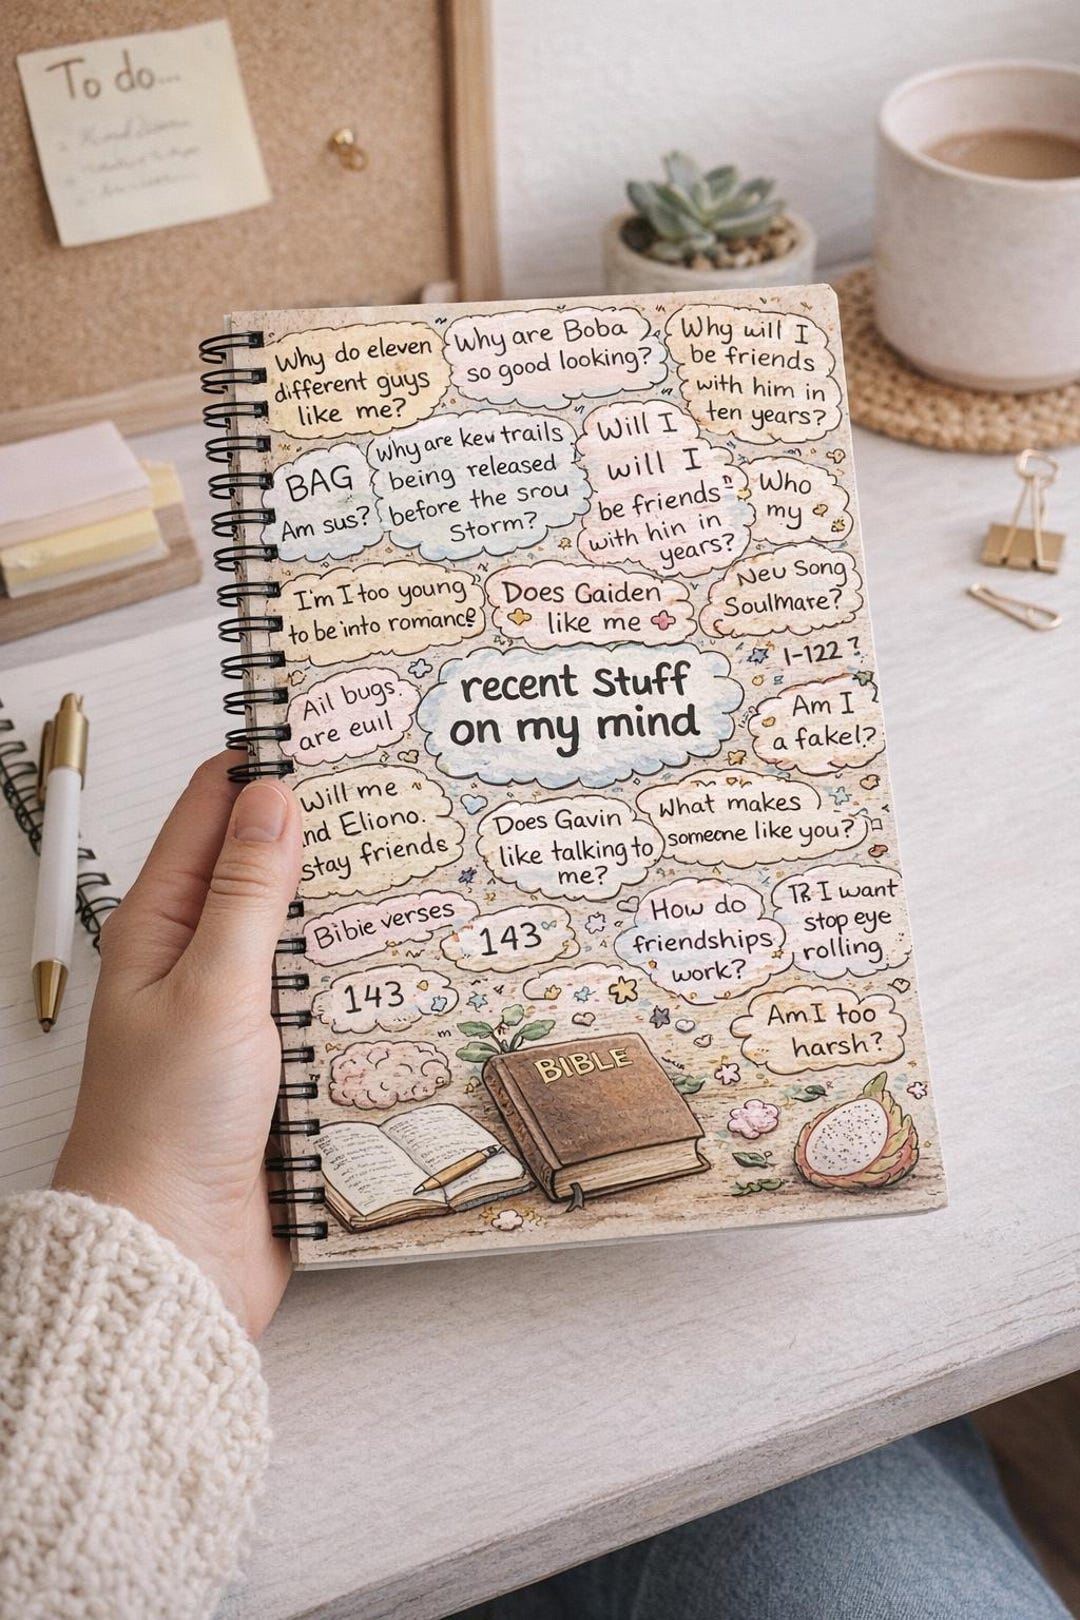 To do...
Why do eleven
different guys
like me?
Why are Boba
so good looking?
Why will I
be friends
with him in
ten years?
BAG
Am sus?
Why are kew trails
being released
before the srou
Storm?
Will I
will I
be friends
with hin in
years?
Who
my
I'm I too young
to be into romance
Does Gaiden
like me
Neu Song
Soulmare?
1-122?
Ail bugs.
are euil
recent Stuff
on my mind
Am I
a fakel?
Will me
nd Eliono.
stay friends
Does Gavin
like talking to
me?
What makes
someone like you?
Bibie verses
143
How do
friendships
work?
I want
stop eye
rolling
143
Am I too
harsh?
BIBLE